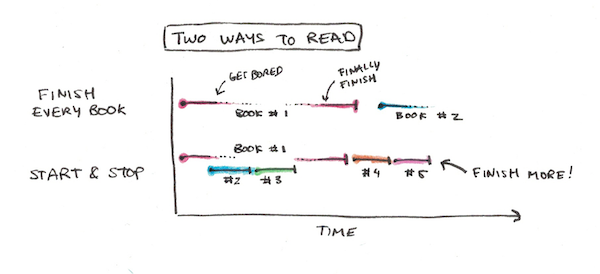 TWO WAYS TO READ
GET BORED
FINALLY
FINISH
FINISH
EVERY BOOK
BOOK #1
BOOK #2
BOOK #1
START & STOP
#2
#3
#4
#5
FINISH MORE!
TIME